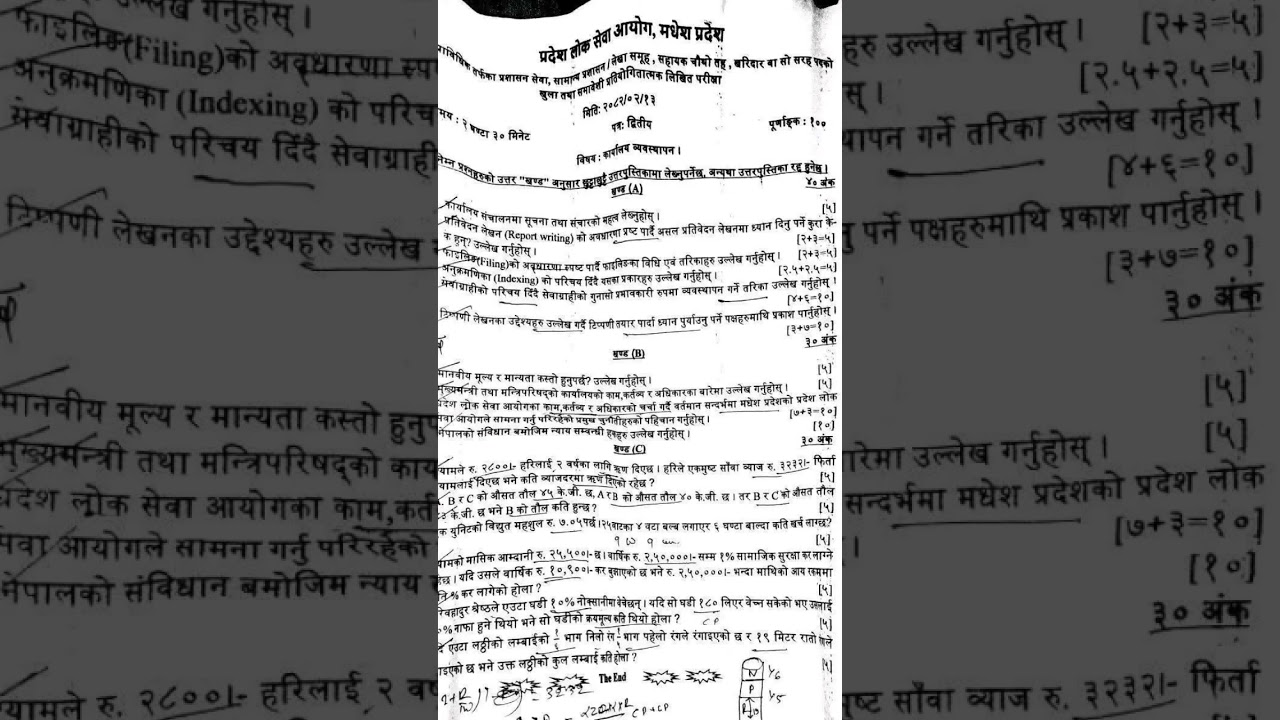 प्रदेश लोक सेवा आयोग, मधेश प्रदेश
प्राविधिक तर्फका प्रशासन सेवा, सामान्य प्रशासन/लेखा समूह, सहायक चौथो तह, खरिदार वा सो सरह पदको
खुला तथा समावेशी प्रतियोगितात्मक लिखित परीक्षा
मिति: २०८२/०२/१३
समय : २ घण्टा ३० मिनेट पत्र: द्वितीय पूर्णाङ्क : १००
विषय : कार्यालय व्यवस्थापन ।
निम्न प्रश्नहरुको उत्तर "खण्ड" अनुसार छुट्टाछुट्टै उत्तरपुस्तिकामा लेख्नुपर्नेछ, अन्यथा उत्तरपुस्तिका रद्द हुनेछ ।
खण्ड (A) ४० अंक
कार्यालय संचालनमा सूचना तथा संचारको महत्व लेख्नुहोस् । [५]
प्रतिवेदन लेखन (Report writing) को अवधारणा प्रष्ट पार्दै असल प्रतिवेदन लेखनमा ध्यान दिनु पर्ने कुरा के-
क हुन्? उल्लेख गर्नुहोस् । [२+३=५]
फाइलिङ(Filing)को अवधारणा स्पष्ट पार्दै फाइलिङका विधि एवं तरिकाहरु उल्लेख गर्नुहोस् । [२+३=५]
अनुक्रमणिका (Indexing) को परिचय दिँदै यसका प्रकारहरु उल्लेख गर्नुहोस् । [२.५+२.५=५]
सेवाग्राहीको परिचय दिँदै सेवाग्राहीको गुनासो प्रभावकारी रुपमा व्यवस्थापन गर्ने तरिका उल्लेख गर्नुहोस् ।
[४+६=१०]
टिप्पणी लेखनका उद्देश्यहरु उल्लेख गर्दै टिप्पणी तयार पार्दा ध्यान पुर्याउनु पर्ने पक्षहरुमाथि प्रकाश पार्नुहोस् ।
[३+७=१०]
खण्ड (B) ३० अंक
मानवीय मूल्य र मान्यता कस्तो हुनुपर्छ? उल्लेख गर्नुहोस् । [५]
मुख्यमन्त्री तथा मन्त्रिपरिषद्को कार्यालयको काम,कर्तव्य र अधिकारका बारेमा उल्लेख गर्नुहोस् । [५]
प्रदेश लोक सेवा आयोगका काम,कर्तव्य र अधिकारको चर्चा गर्दै वर्तमान सन्दर्भमा मधेश प्रदेशको प्रदेश लोक
सेवा आयोगले सामना गर्नु परिरहेको प्रमुख चुनौतीहरुको पहिचान गर्नुहोस् । [७+३=१०]
नेपालको संविधान बमोजिम न्याय सम्बन्धी हकहरु उल्लेख गर्नुहोस् । [१०]
खण्ड (C) ३० अंक
यामले रु. २८००।- हरिलाई २ वर्षका लागि ऋण दिएछ । हरिले एकमुष्ट साँवा ब्याज रु. ३२३२।- फिर्ता
यामलाई दिएछ भने कति व्याजदरमा ऋण दिएको रहेछ ? [५]
B र C को औसत तौल ४५ के.जी. छ, A र B को औसत तौल ४० के.जी. छ । तर B र C को औसत तौल
के.जी. छ भने B को तौल कति हुन्छ ? [५]
क युनिटको विद्युत महशुल रु. ७.०५ पर्छ । २५ वाटका ४ वटा बल्ब लगाएर ६ घण्टा बाल्दा कति खर्च लाग्छ?
[५]
यामको मासिक आम्दानी रु. २५,५००।- छ । वार्षिक रु. २,५०,०००।- सम्म १% सामाजिक सुरक्षा कर लाग्ने
रहेछ । यदि उसले वार्षिक रु. १०,९००।- कर बुझाएको छ भने रु. २,५०,०००।- भन्दा माथिको आय रकममा
ति % कर लागेको होला ? [५]
बहादुर श्रेष्ठले एउटा घडी १०% नोक्सानीमा बेचेछन् । यदि सो घडी १८० लिएर बेच्न सकेको भए उसलाई
% नाफा हुने थियो भने सो घडीको क्रयमूल्य कति थियो होला ? [५]
CP
एउटा लठ्ठीको लम्बाईको भाग निलो रंग भाग पहेलो रंगले रंगाइएको छ र १९ मिटर रातो रंगले
गाइएको छ भने उक्त लठ्ठीको कुल लम्बाई कति होला ? [५]
The End
N
P
R
CP + CP